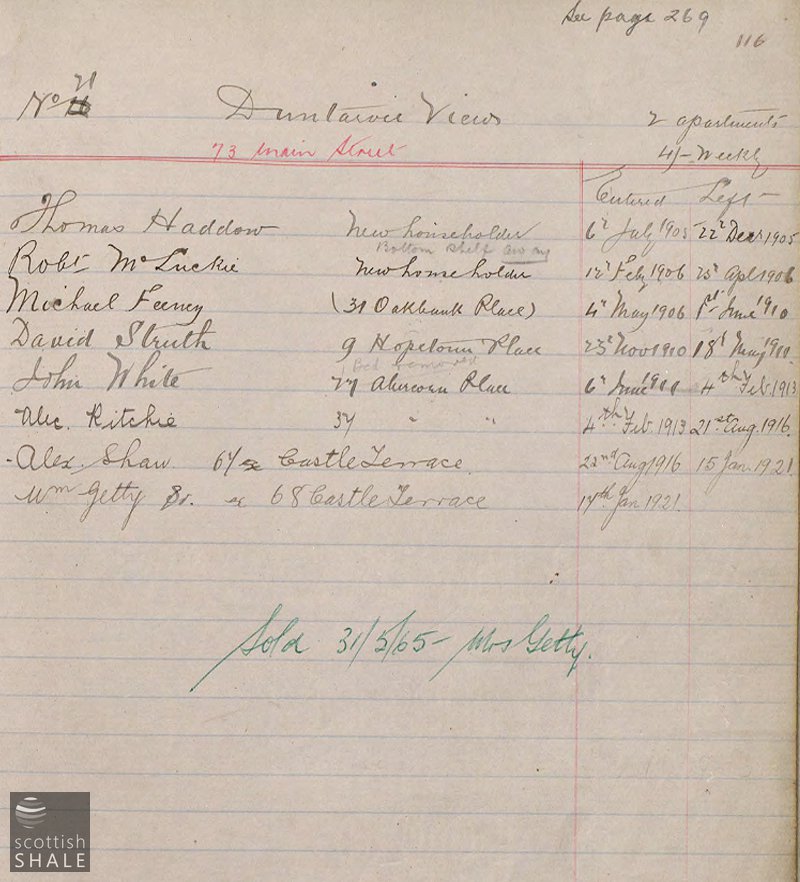 See page 269
116
21
No 16 Duntarvie Views 2 apartments
73 Main Street 4/- Weekly
Entered Left
Thomas Haddow New householder 6th July 1905 22nd Decr 1905
Bottom Shelf away
Robt McLuckie New householder 12th Feby 1906 25th Apl 1906
Michael Feeney (31 Oakbank Place) 4th May 1906 1st June 1910
David Struth 9 Hopetoun Place 23rd Nov 1910 18th May 1911
1 Bed removed
John White 77 Abercorn Place 6th June 1911 4th Feb. 1913
Alec. Ritchie 37 " " 4th Feb. 1913 21st Aug. 1916.
Alex. Shaw. 67 ex Castle Terrace. 22nd Aug 1916 15 Jan. 1921.
Wm Getty Sr. ex 68 Castle Terrace 17th Jan 1921.
Sold 31/5/65 - Mrs Getty.
scottish
SHALE